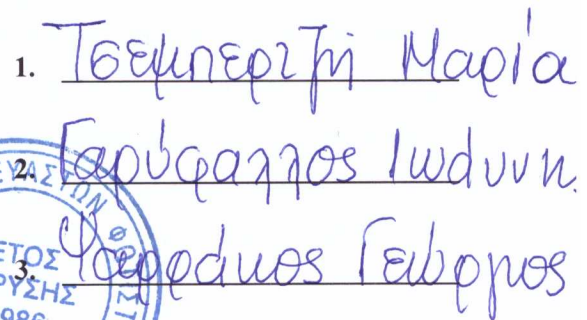 1. Τσεμπερτζή Μαρία
2. Γαρύφαλλος Ιωάννη
3. Γεώργιος
ΕΤΟΣ
ΡΥΣΗΣ